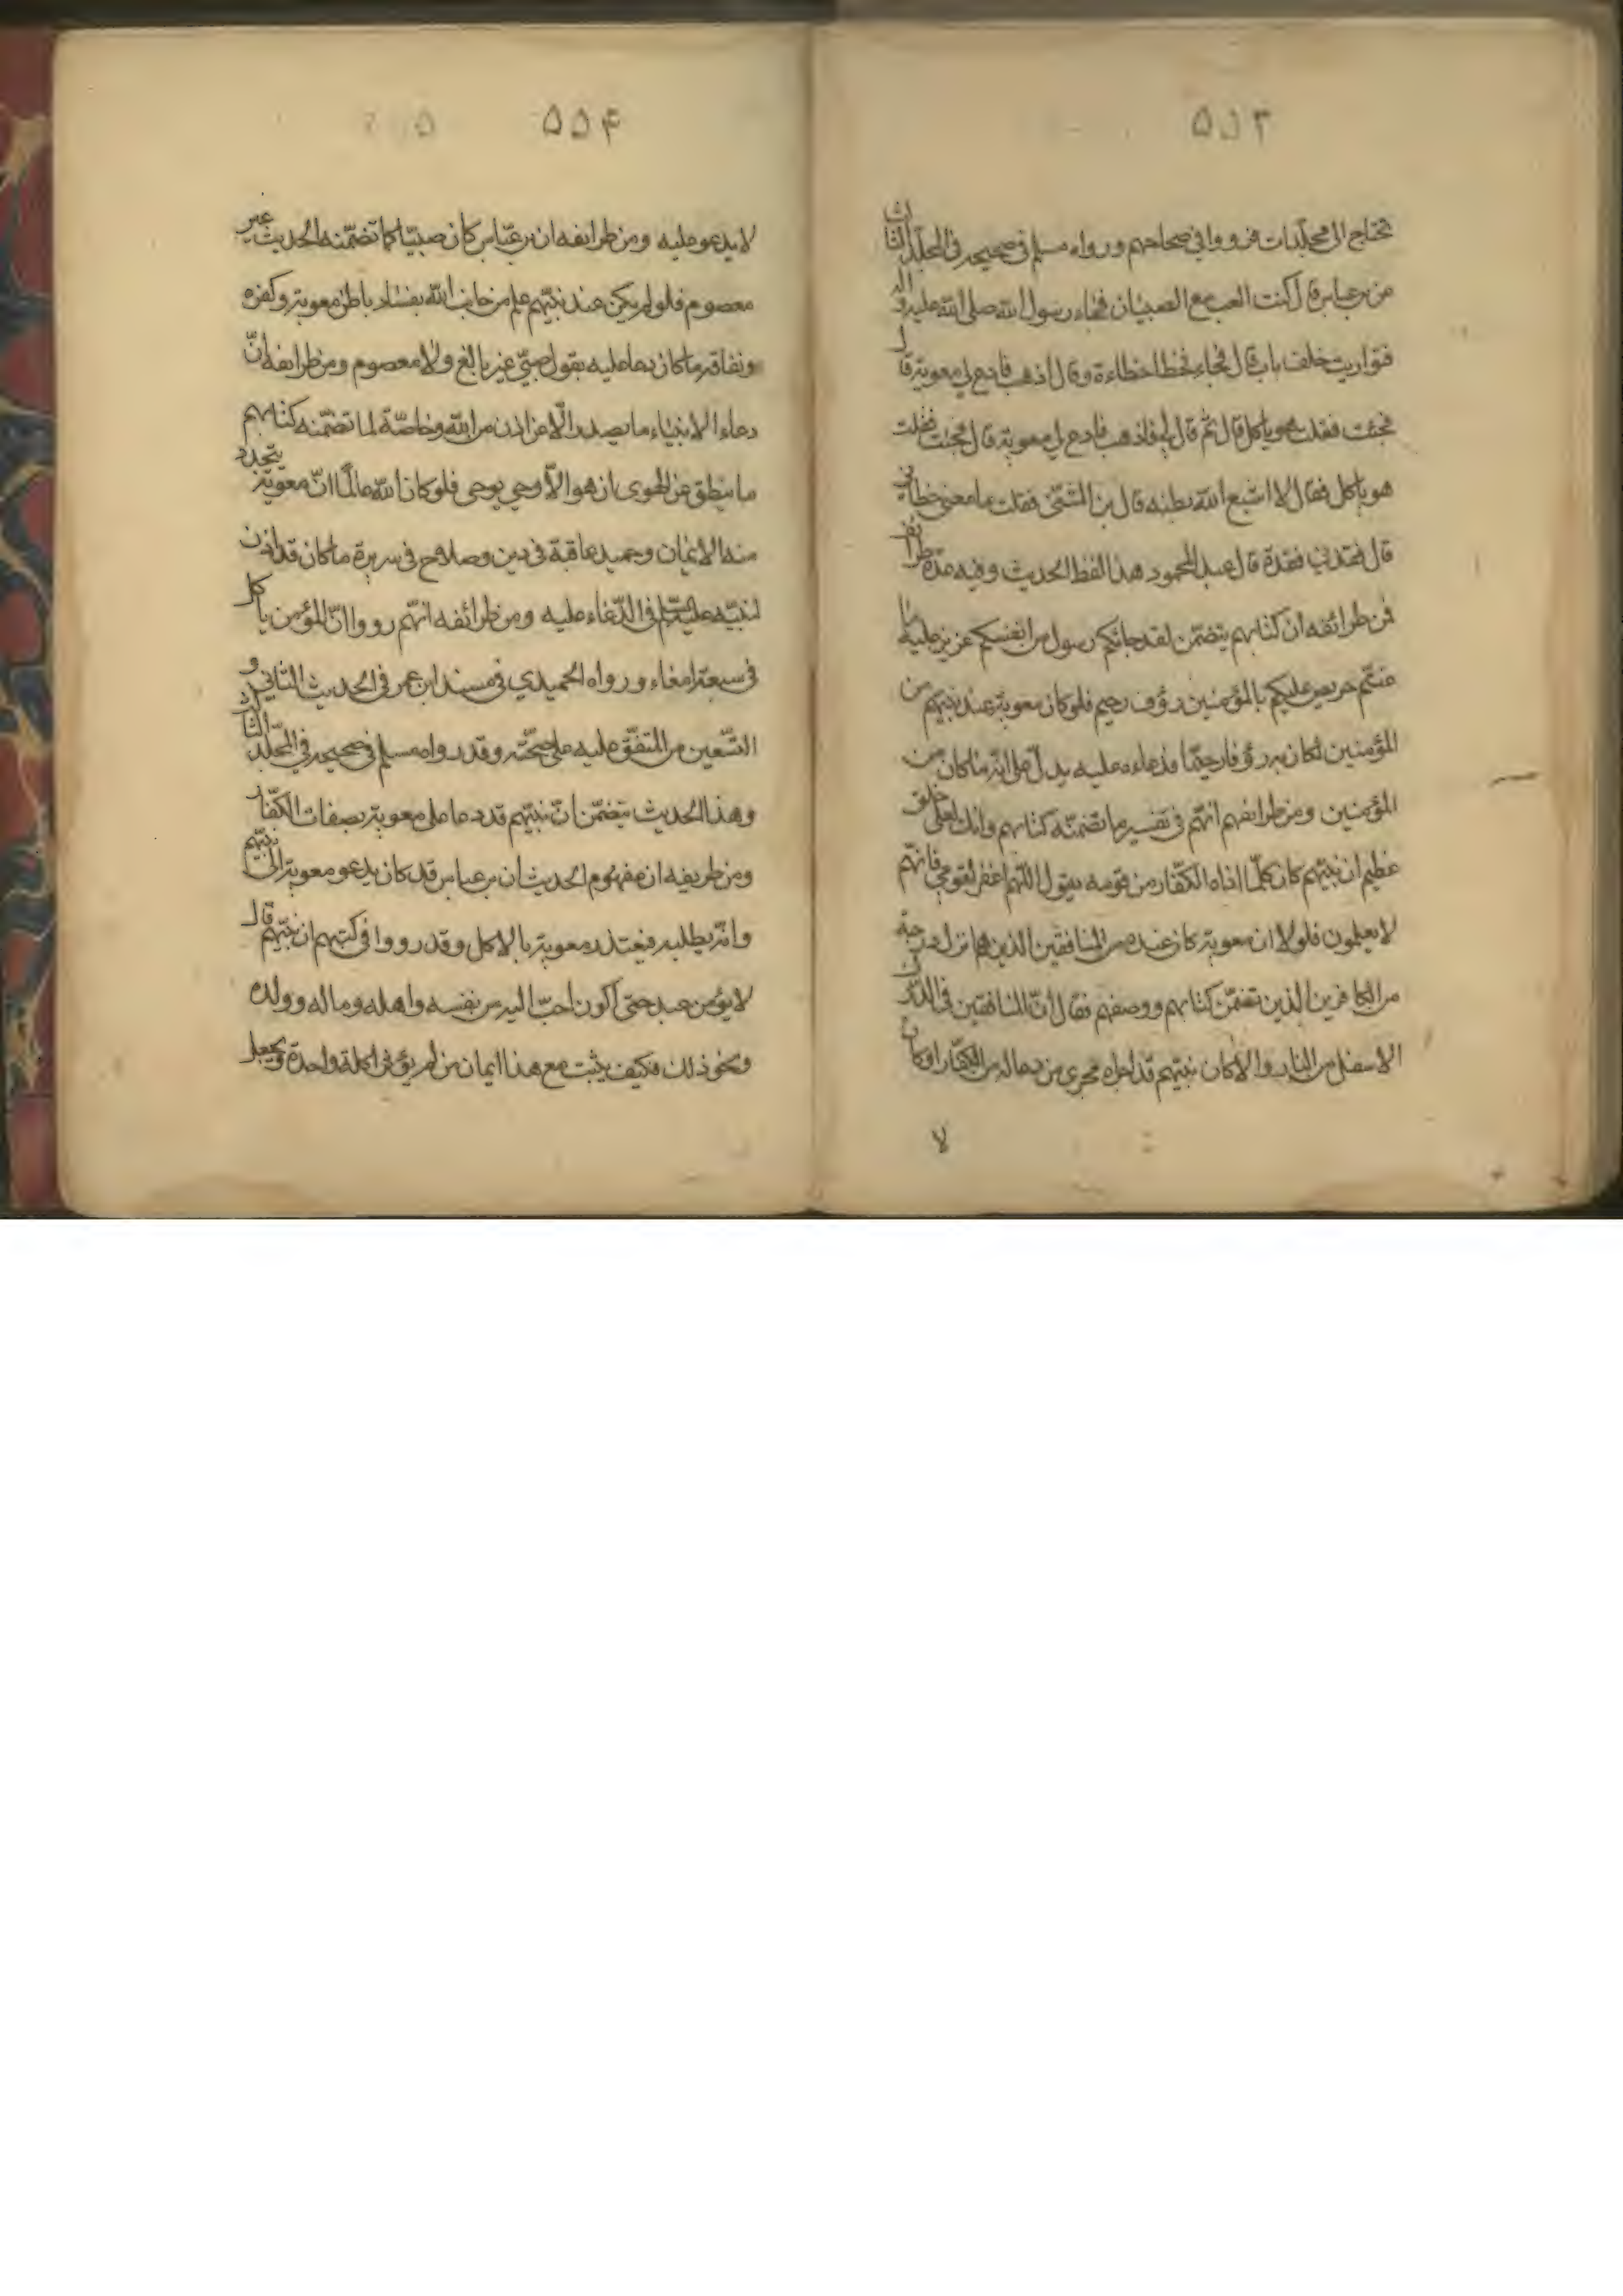 ۵۵۳
تحتاج الى مجلدات فرووا في صحاحهم ورواه مسلم في صحيحه في المجلد الثالث
عن بن عباس قال كنت العب مع الصبيان فجاء رسول الله صلى الله عليه واله
فتواريت خلف باب قال فجاء فخطا خطاءة وقال اذهب فادع لي معوية قال
فجئت فقلت هو ياكل قال ثم قال لي فاذهب فادع لي معوية قال فجئت فقلت
هو ياكل فقال لا اشبع الله بطنه قال بن المثنى فقلت ما معنى خطاني
قال فقدني فقدة قال عبد المحمود هذا لفظ الحديث وفيه عدة طرائف
فمن طرائفه ان كتابهم يتضمن لقد جائكم رسول من انفسكم عزيز عليه ما
عنتم حريص عليكم بالمؤمنين رؤف رحيم فلو كان معوية عند نبيهم من
المؤمنين لكان به رؤفا رحيما فدعاءه عليه يدل على انه ما كان من
المؤمنين ومن طرائفهم انهم في تفسير ما تضمنه كتابهم وانك لعلى خلق
عظيم ان نبيهم كان كلما اذاه الكفار من قومه يقول اللهم اغفر لقومي فانهم
لا يعلمون فلولا ان معوية كان عنده من المنافقين الذين هم انزل درجة
من الكافرين الذين تضمن كتابهم ووصفهم فقال ان المنافقين في الدرك
الاسفل من النار والا كان نبيهم قد اجراه مجرى من دعا له من الكفار او كان
لا
۵۵۴
لا يدعو عليه ومن طرائفه ان بن عباس كان صبيا كما تضمنه الحديث غير
معصوم فلو لم يكن عند نبيهم علم من جانب الله بفساد باطن معوية وكفره
ونفاقه ما كان دعا عليه بقول صبي غير بالغ ولا معصوم ومن طرائفه ان
دعاء الانبياء ما يصدر الا عن اذن من الله وخاصة لما تضمنه كتابهم
ما ينطق عن الهوى ان هو الا وحي يوحى فلو كان الله عالما ان معوية يتجدد
منه الايمان وحميد عاقبة في دين وصلاح في سريرة ما كان قد اذن
لنبيه عليه السلم في الدعاء عليه ومن طرائفه انهم رووا ان المؤمن ياكل
في سبعة امعاء ورواه الحميدي في مسند ابن عمر في الحديث الثاني و
التسعين من المتفق عليه على صحته وقد رواه مسلم في صحيحه في المجلد الثالث
وهذا الحديث يتضمن ان نبيهم قد دعا على معوية بصفات الكفار
ومن طريفه ان مفهوم الحديث ان بن عباس قد كان يدعو معوية الى نبيهم
وانه يطلبه فيعتذر معوية بالاكل وقد رووا في كتبهم ان نبيهم قال
لا يؤمن عبد حتى اكون احب اليه من نفسه واهله وماله وولده
ونحو ذلك فكيف يثبت مع هذا ايمان من لم يؤثر اكلة واحدة ويجعل